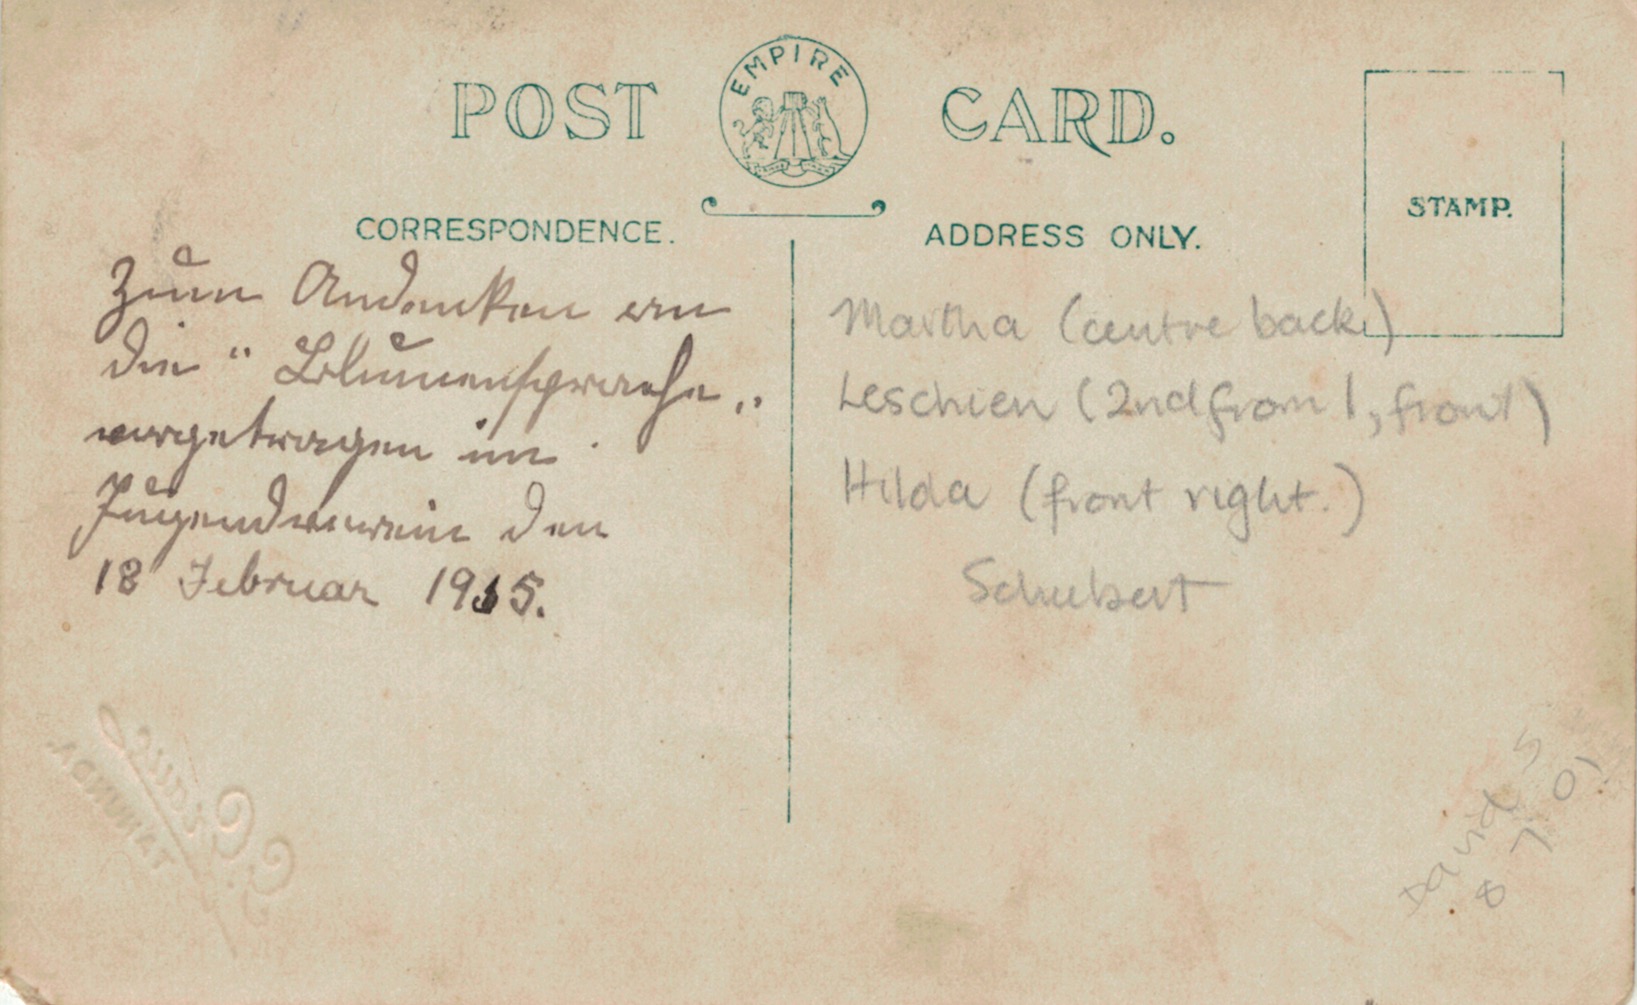 POST CARD.
EMPIRE
CORRESPONDENCE.
ADDRESS ONLY.
STAMP.
Zum Andenken an
die "Blumensprache"
vorgetragen im
Jugendverein den
18 Februar 1915.
Martha (centre back)
Leschien (2nd from l, front)
Hilda (front right.)
Schubert
TANUNDA.
David S
8 7 01